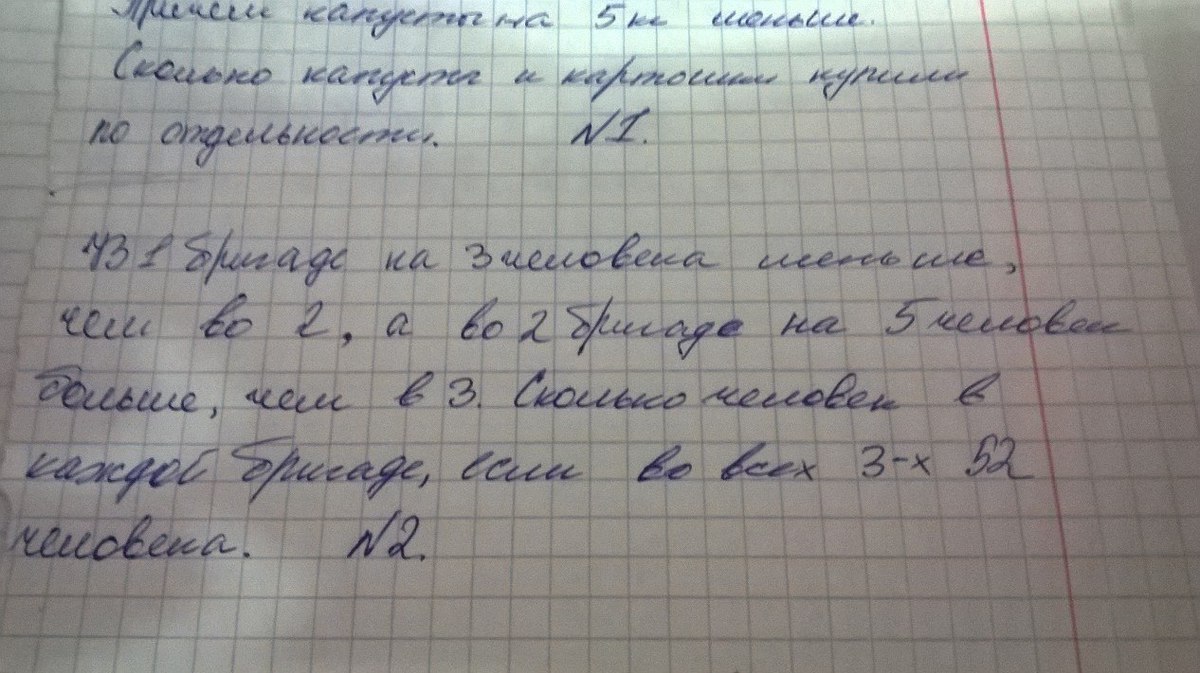 Причем капусты на 5 кг меньше.
Сколько капусты и картошки купили
по отдельности. N1.
В 1 бригаде на 3 человека меньше,
чем во 2, а во 2 бригаде на 5 человек
больше, чем в 3. Сколько человек в
каждой бригаде, если во всех 3-х 52
человека. N2.